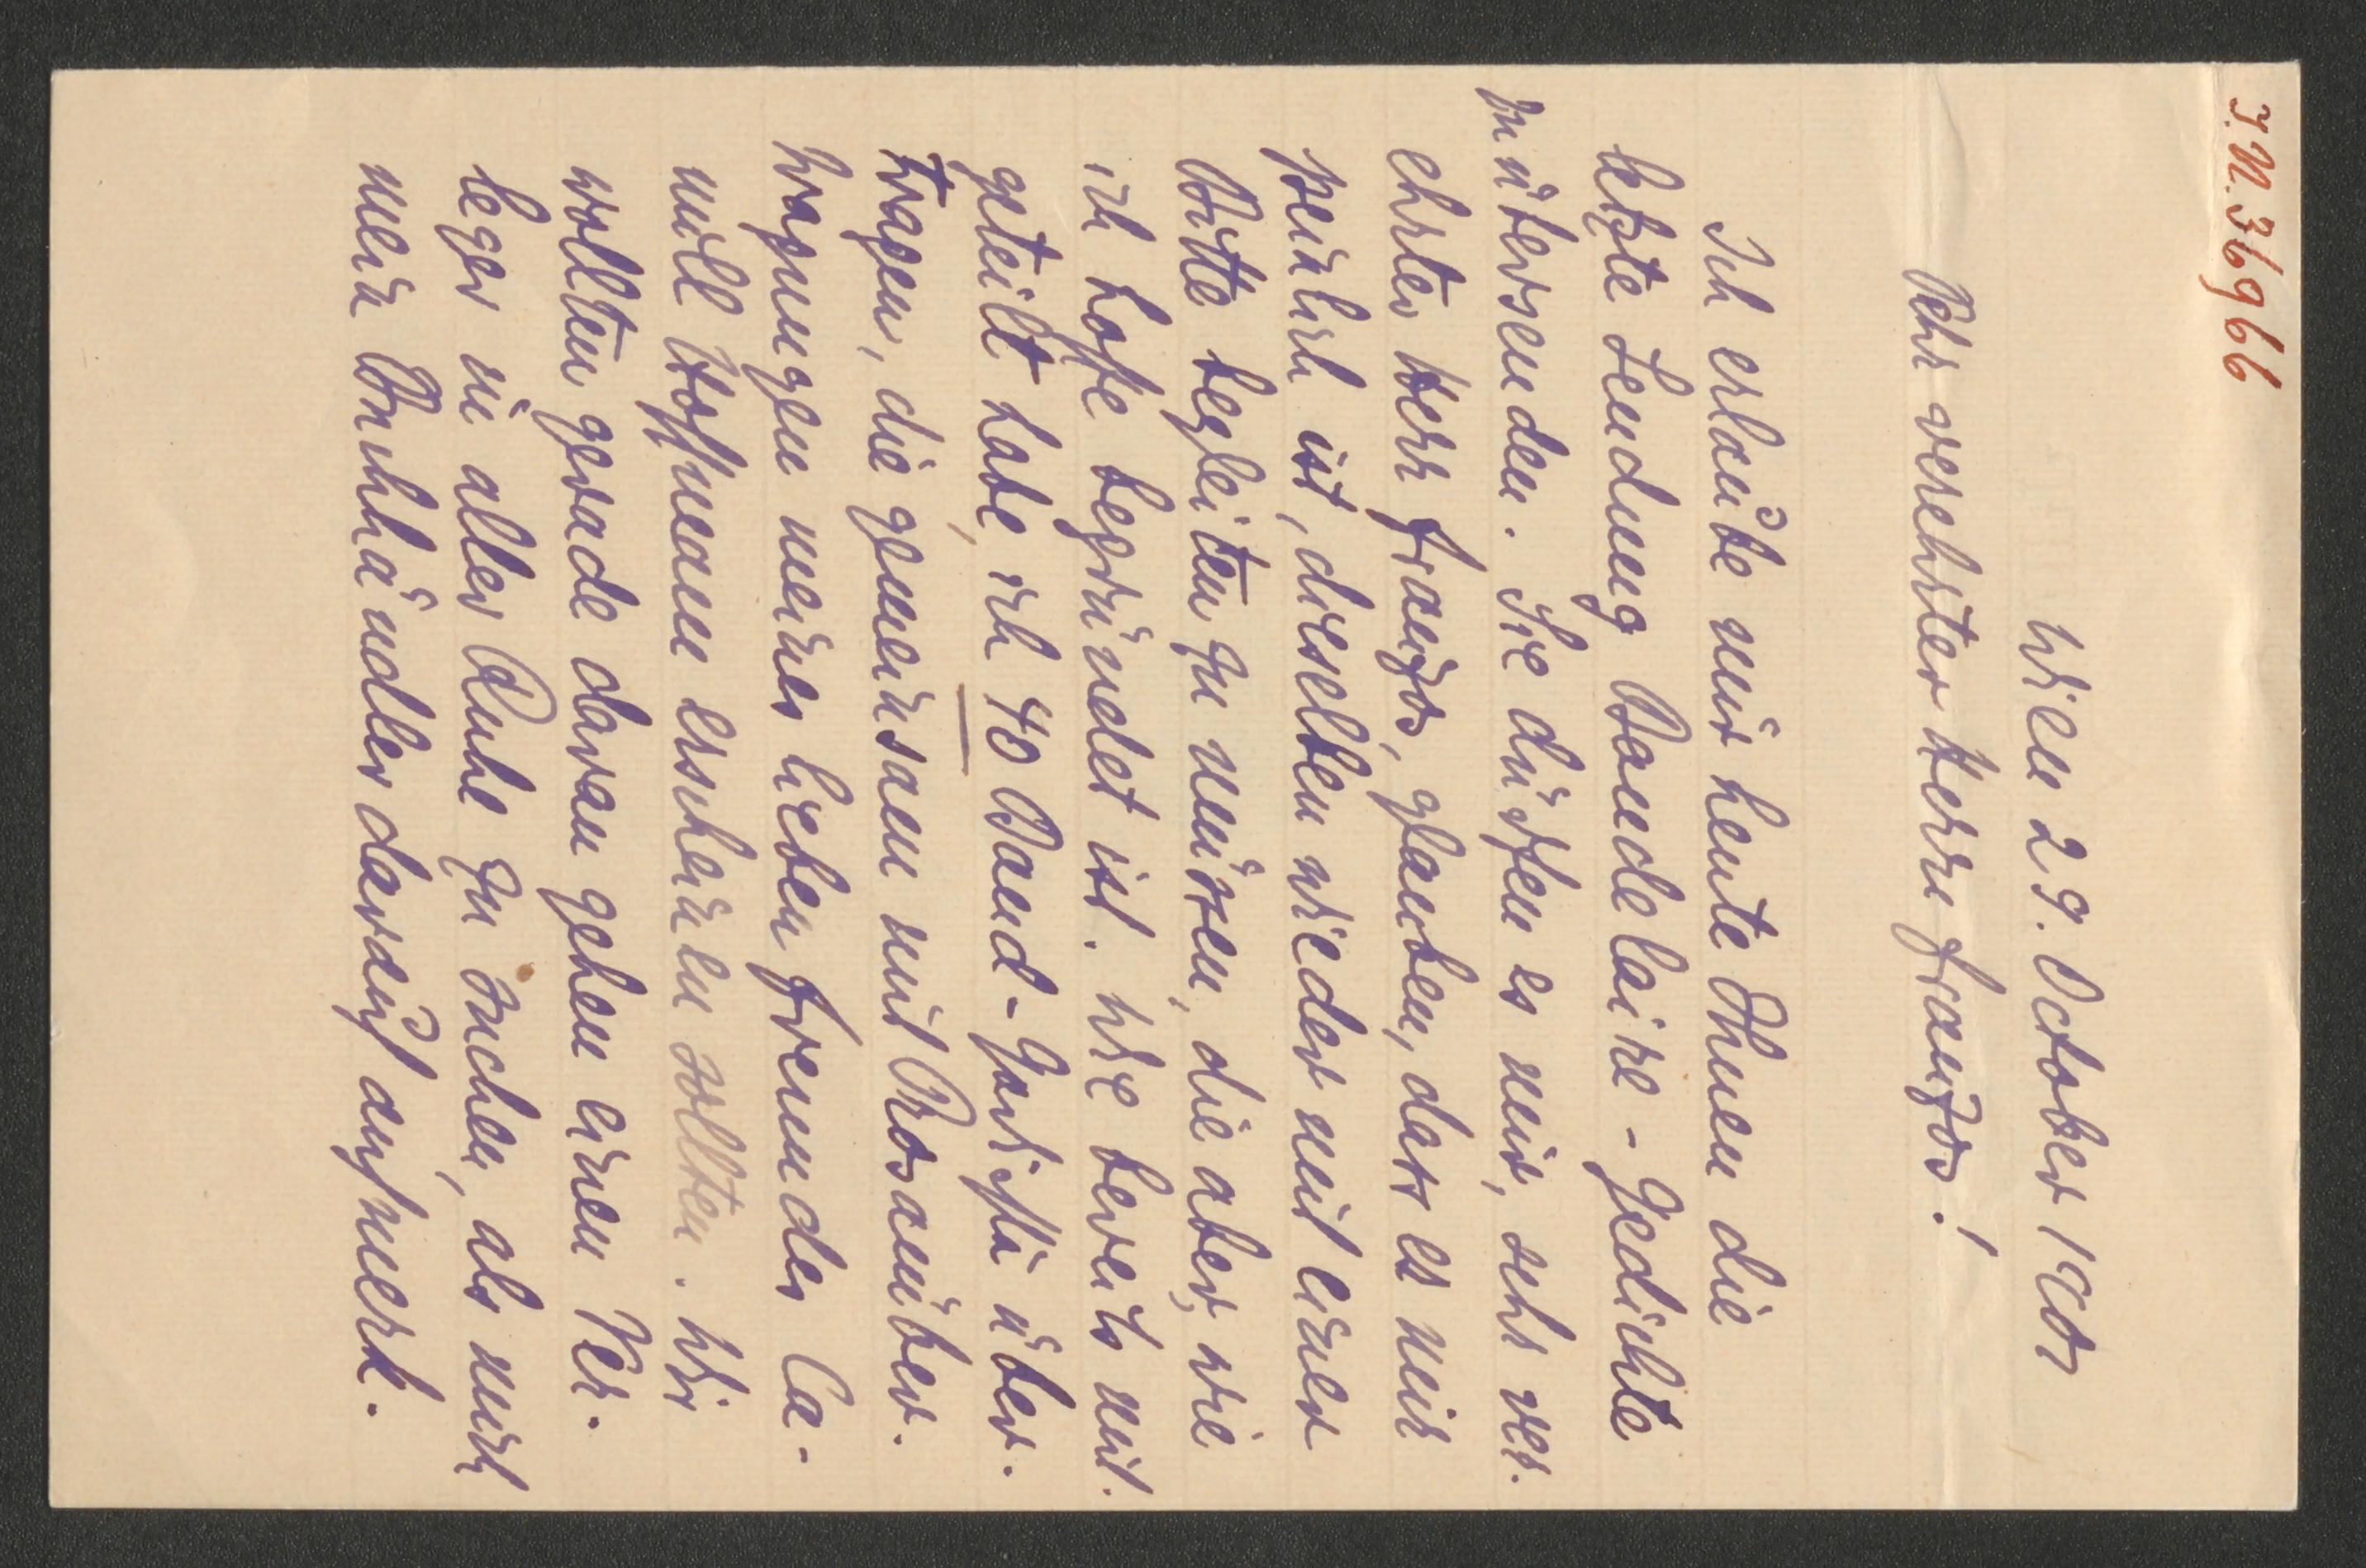 I.N. 36966
Wien 29. October 1905
Sehr verehrter Herr Franzos!
Ich erlaube mir heute Ihnen die
letzte Sendung Baudelaire-Gedichte
zu übersenden. Sie dürfen es mir, sehr ver-
ehrter Herr Franzos, glauben, dass es mir
peinlich ist, dieselben wieder mit einer
Bitte begleiten zu müssen, die aber, wie
ich hoffe begründet ist. Wie bereits mit-
geteilt habe, ich 40 Baud-Gedichte über-
tragen, die gemeinsam mit
tragungen meines lieben Freundes Ca-
mill Hoffmann erscheinen sollten. Wir
wollten gerade daran gehen einen Ver-
leger in aller Ruhe zu suchen, als mich
mein Buchhändler darauf aufmerk-